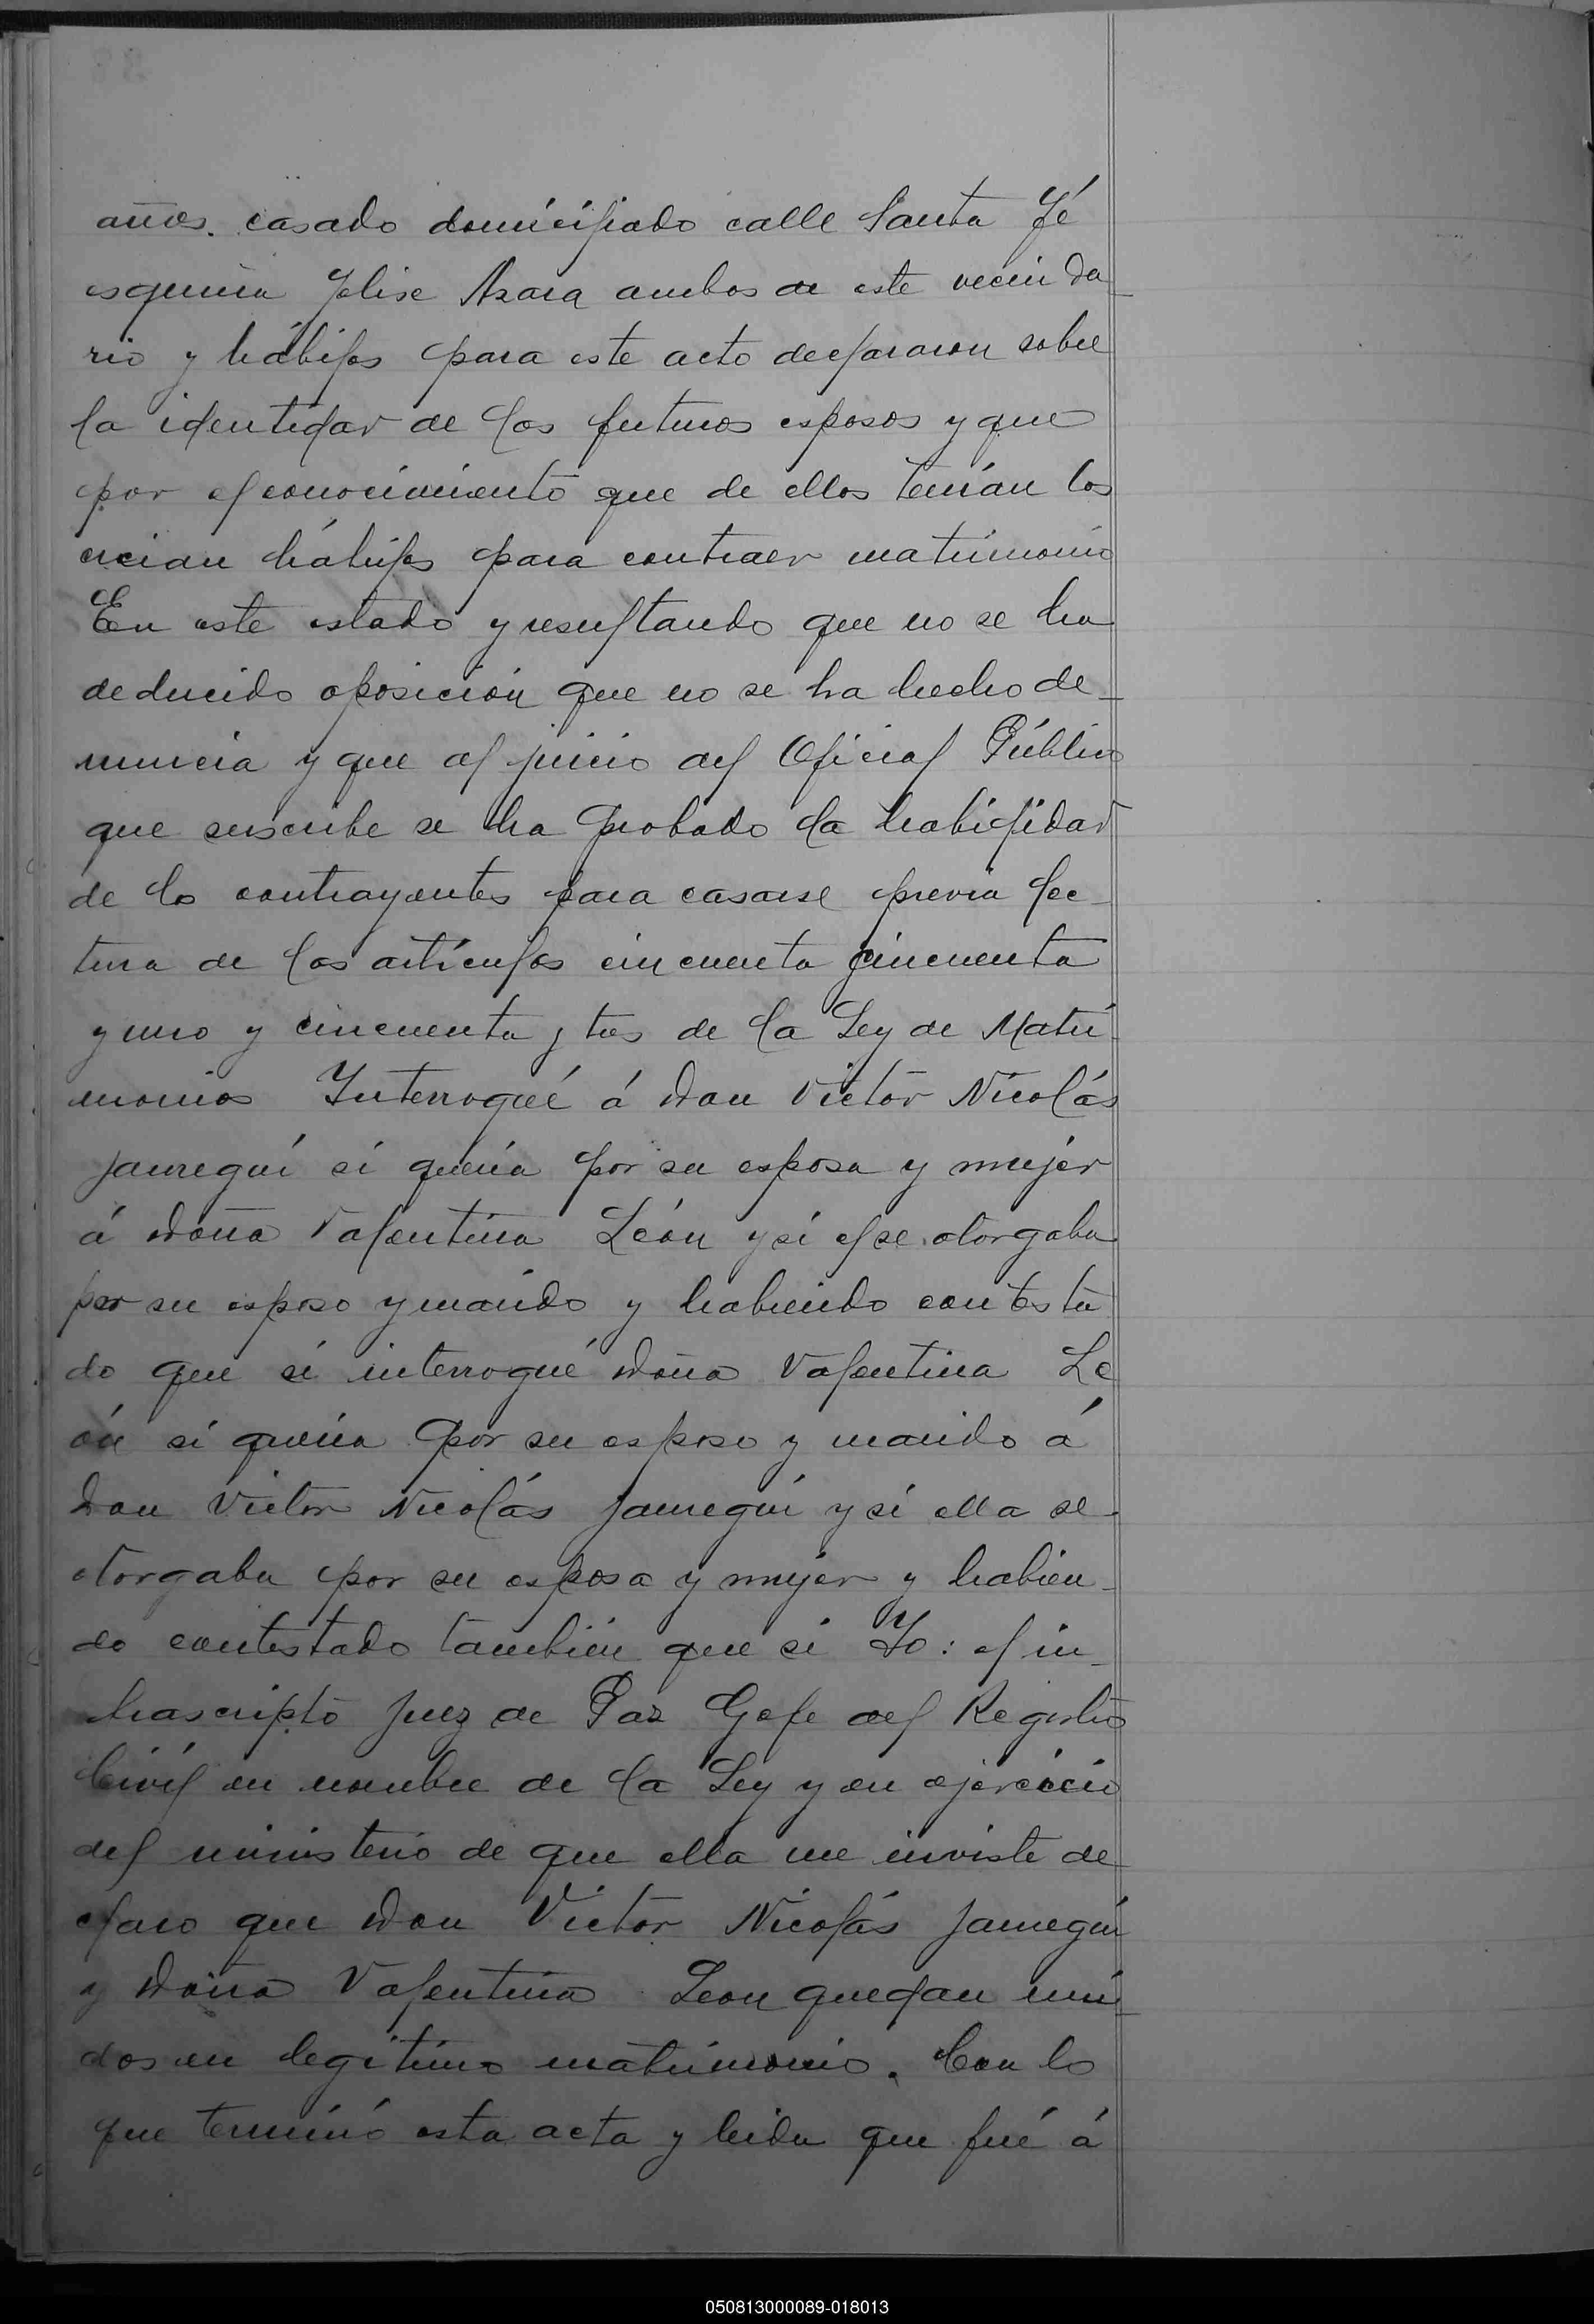 años. casado domiciliado calle Santa Fé
esquina Felise Azara ambos de este vecinda_
rio y hábiles para este acto declararon sobre
la identidad de los futuros esposos y que
por el conocimiento que de ellos tenían los
creian hábiles para contraer matrimonio
En este estado y resultando que no se ha
deducido oposición que no se ha hecho de_
nuncia y que al juicio del Oficial Público
que suscribe se ha probado la habilidad
de lo contrayentes para casarse previa lec_
tura de los artículos cincuenta cincuenta
y uno y cincuenta y tres de la Ley de Matri_
monios Interrogué á Don Victor Nicolás
Jauregui si quería por su esposa y mujer
á Doña Valentina León y si el se otorgaba
por su esposo y marido y habiendo contesta
do que si interrogué Doña Valentina Le
ón si quería por su esposo y marido á
Don Victor Nicolás Jauregui y si ella se_
otorgaba por su esposa y mujer y habien_
do contestado también que si Yo: el in_
frascripto Juez de Paz Gefe del Registro
Civil en nombre de la Ley y en ejercicio
del ministerio de que ella me inviste de_
claro que Don Victor Nicolás Jauregui
y Doña Valentina Leon quedan uni_
dos en legitimo matrimonio. Con lo
que terminó esta acta y leida que fué á
050813000089-018013